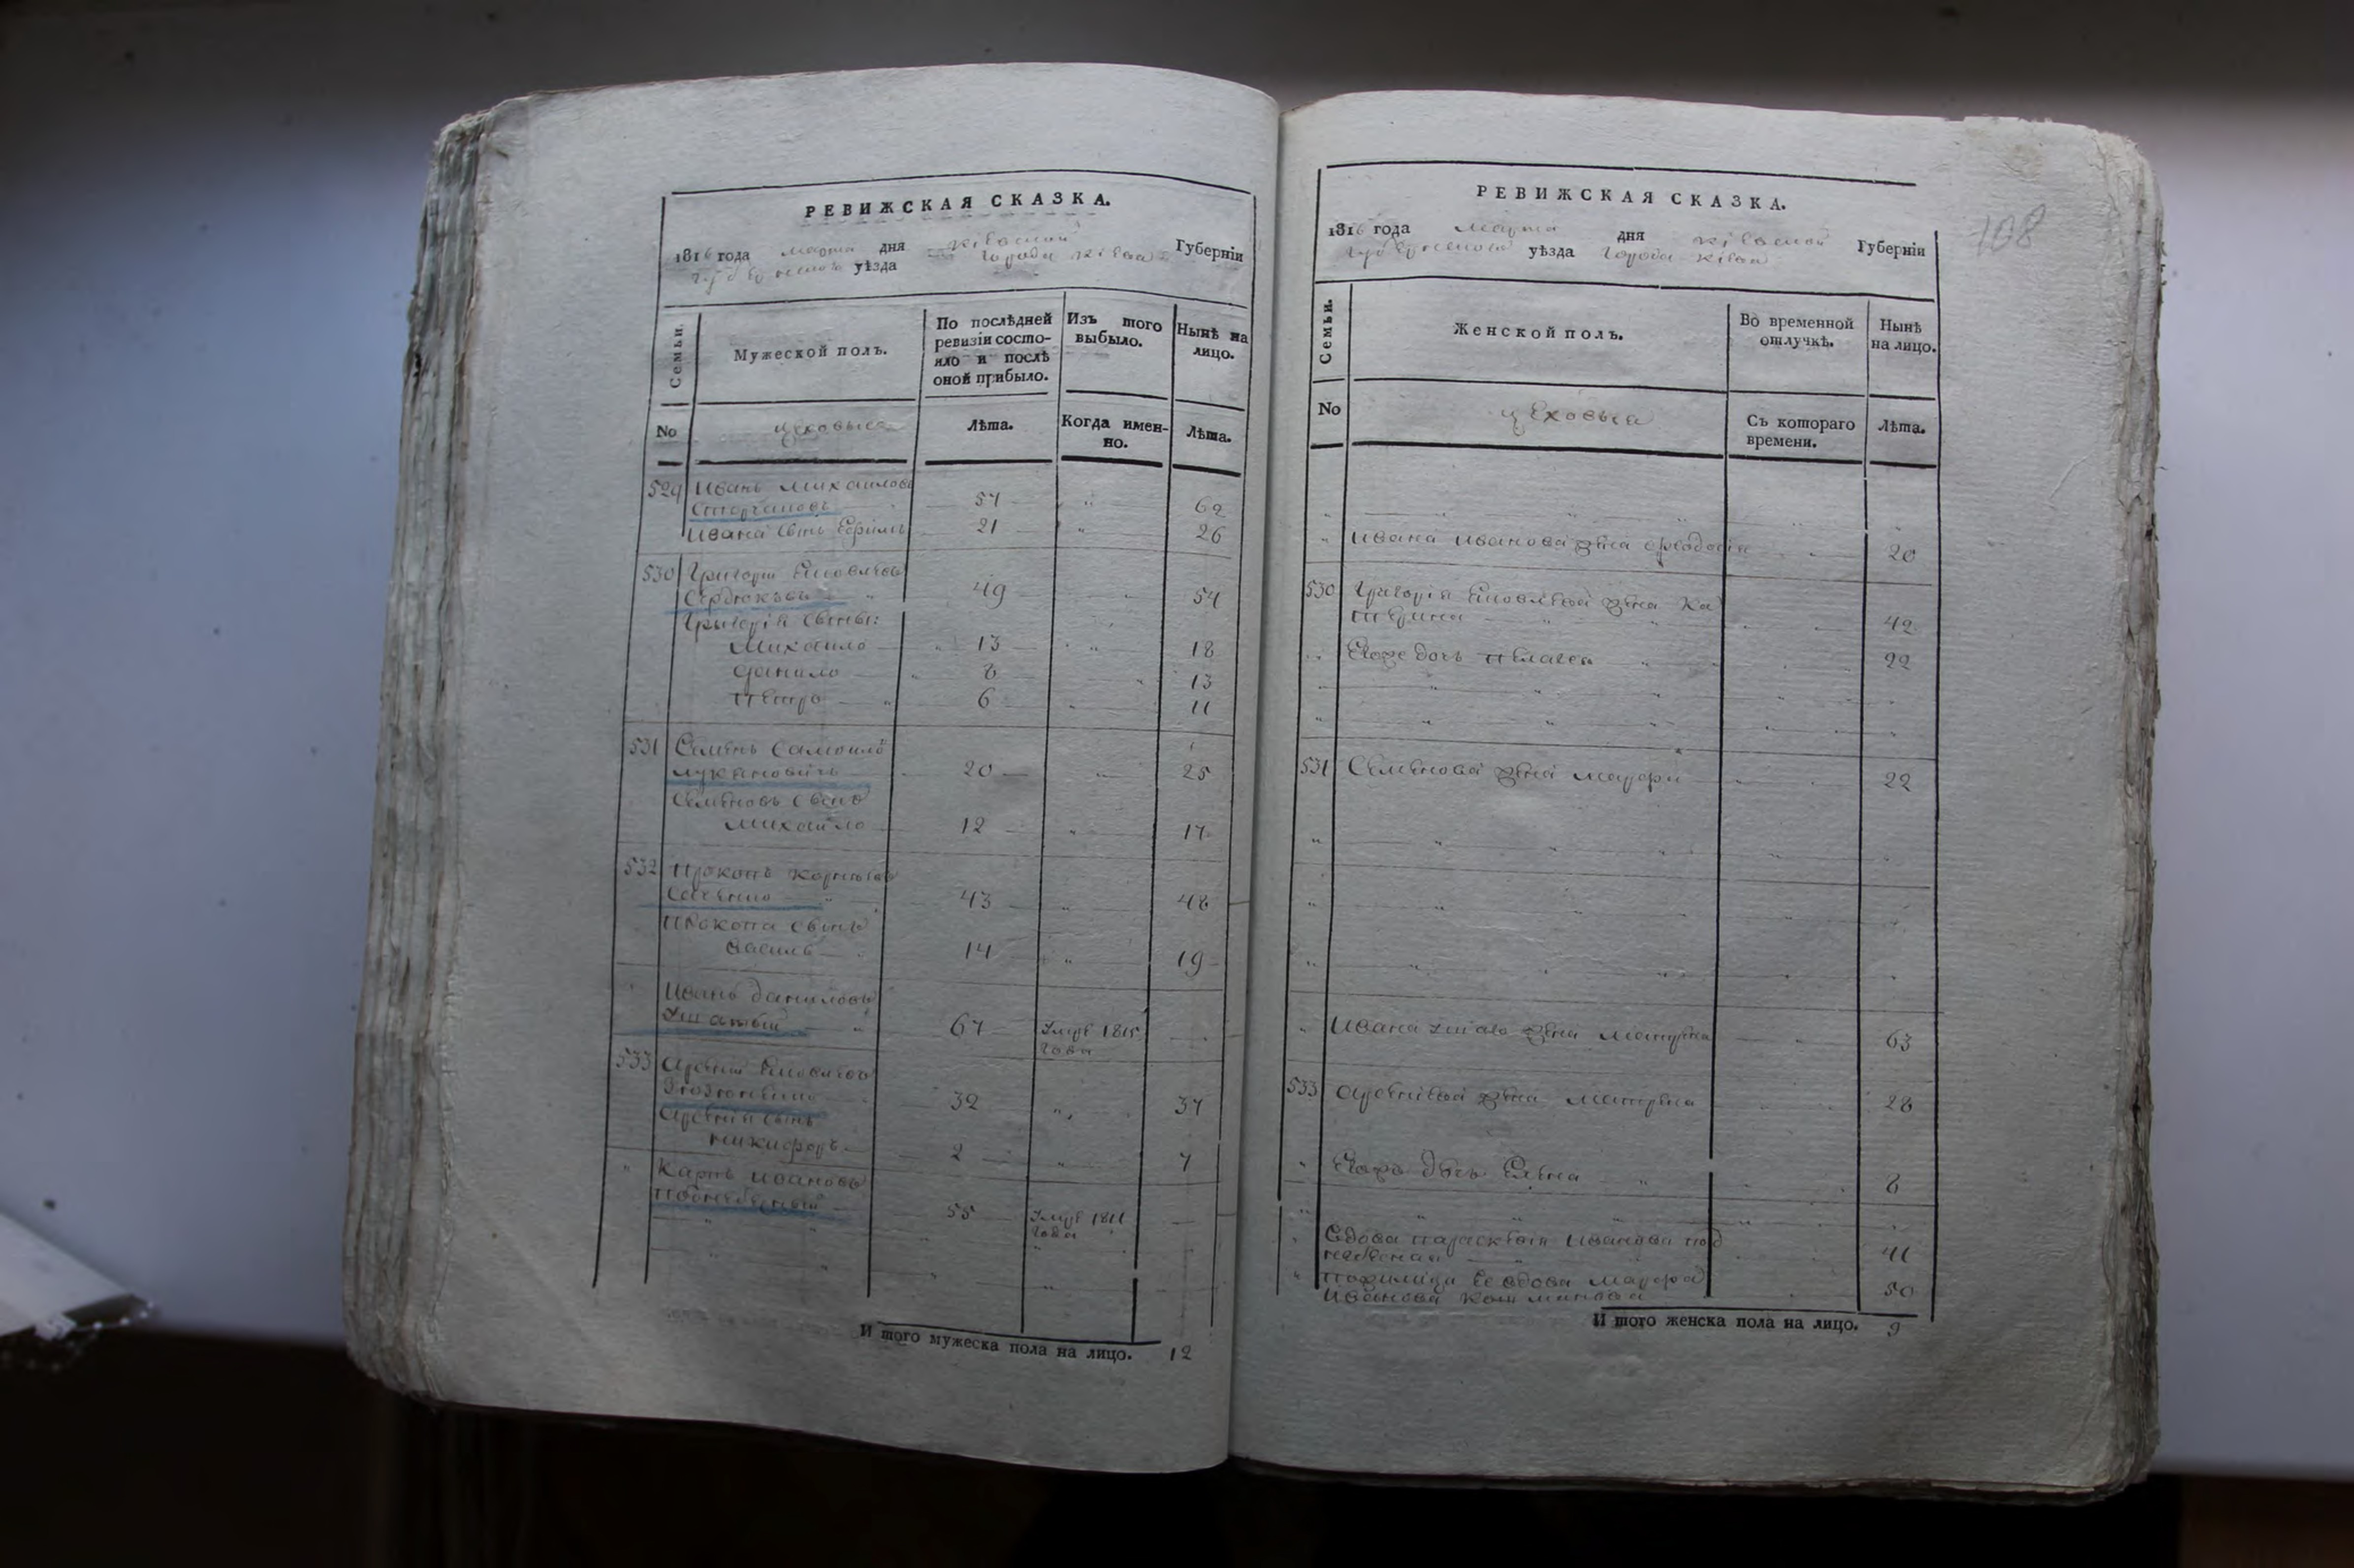 РЕВИЖСКАЯ СКАЗКА.
1816 года марта дня Кіевской Губерніи
уѣзда города Кіева
Семьи.
Мужеской полъ.
По послѣдней ревизіи состояло и послѣ оной прибыло.
Изъ того выбыло.
Нынѣ на лицо.
No
цеховыя
Лѣта.
Когда именно.
Лѣта.
529 Иванъ Михайловъ
57 62
Ивана сынъ 21 26
530 Григорій Яковлевъ
Сердюковъ 49 54
Григорія сыны:
Михайло 13 18
Данило 8 13
Петро 6 11
531 Семенъ Самойлов
Лукяновичъ 20 25
Семеновъ сынъ
Михайло 12 17
532 Прокопъ Карніевъ
43 48
Прокопа сынъ
Василь 14 19
Иванъ Даниловъ
67 Умре 1815
года
533 Арсеній Яковлевъ
32 37
Арсенія сынъ
Никифоръ 2 7
Карпъ Ивановъ
55 Умре 1811
года
И того мужеска пола на лицо. 12
108
РЕВИЖСКАЯ СКАЗКА.
1816 года марта дня Кіевской Губерніи
уѣзда города Кіева
Семьи.
Женской полъ.
Во временной отлучкѣ.
Нынѣ на лицо.
No
цеховыя
Съ котораго времени.
Лѣта.
Ивана Иванова жена Феодосія 20
530 Григорія Яковлева жена Ка
терина 42
Егоже дочь Пелагея 22
531 Семенова жена Марфа 22
Ивана жена Матрена 63
533 Арсеніева жена Матрена 28
Егожъ дочь Елена 8
Вдова Параскевія Иванова под
41
вдова Марфа
Иванова 50
И того женска пола на лицо. 9